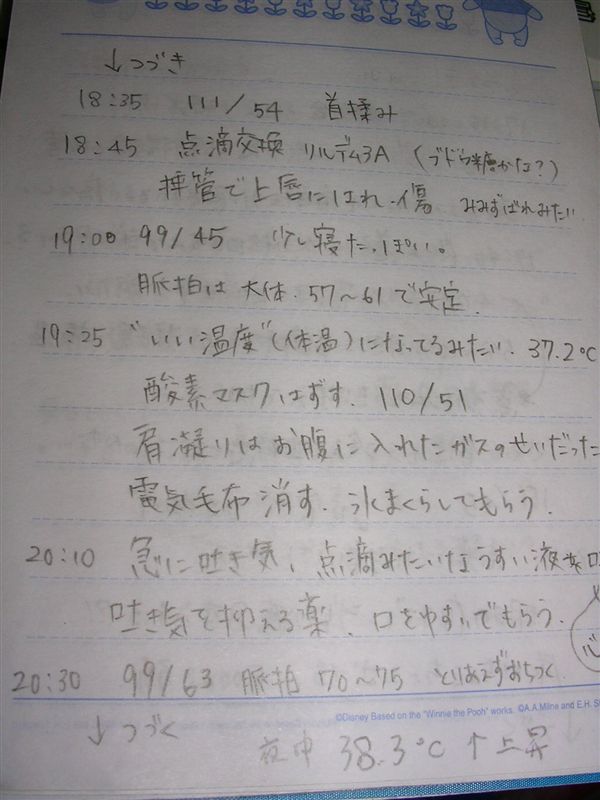 ↓つづき
18:35 111/54 首揉み
18:45 点滴交換 ソルデム3A (ブドウ糖かな?)
挿管で上唇にはれ・傷 みみずばれみたい
19:00 99/45 少し寝たっぽい。
脈拍は大体、57~61で安定.
19:25 "いい温度"(体温)になってるみたい. 37.2℃
酸素マスクはずす. 110/51
肩凝りはお腹に入れたガスのせいだった
電気毛布消す. 氷まくらしてもらう.
20:10 急に吐き気、点滴みたいなうすい液を
吐き気を抑える薬、口をゆすいでもらう.
20:30 99/63 脈拍 70~75 とりあえずおちつく.
©Disney Based on the "Winnie the Pooh" works. ©A.A.Milne and E.H. S
↓つづく
夜中 38.3℃ ↑上昇